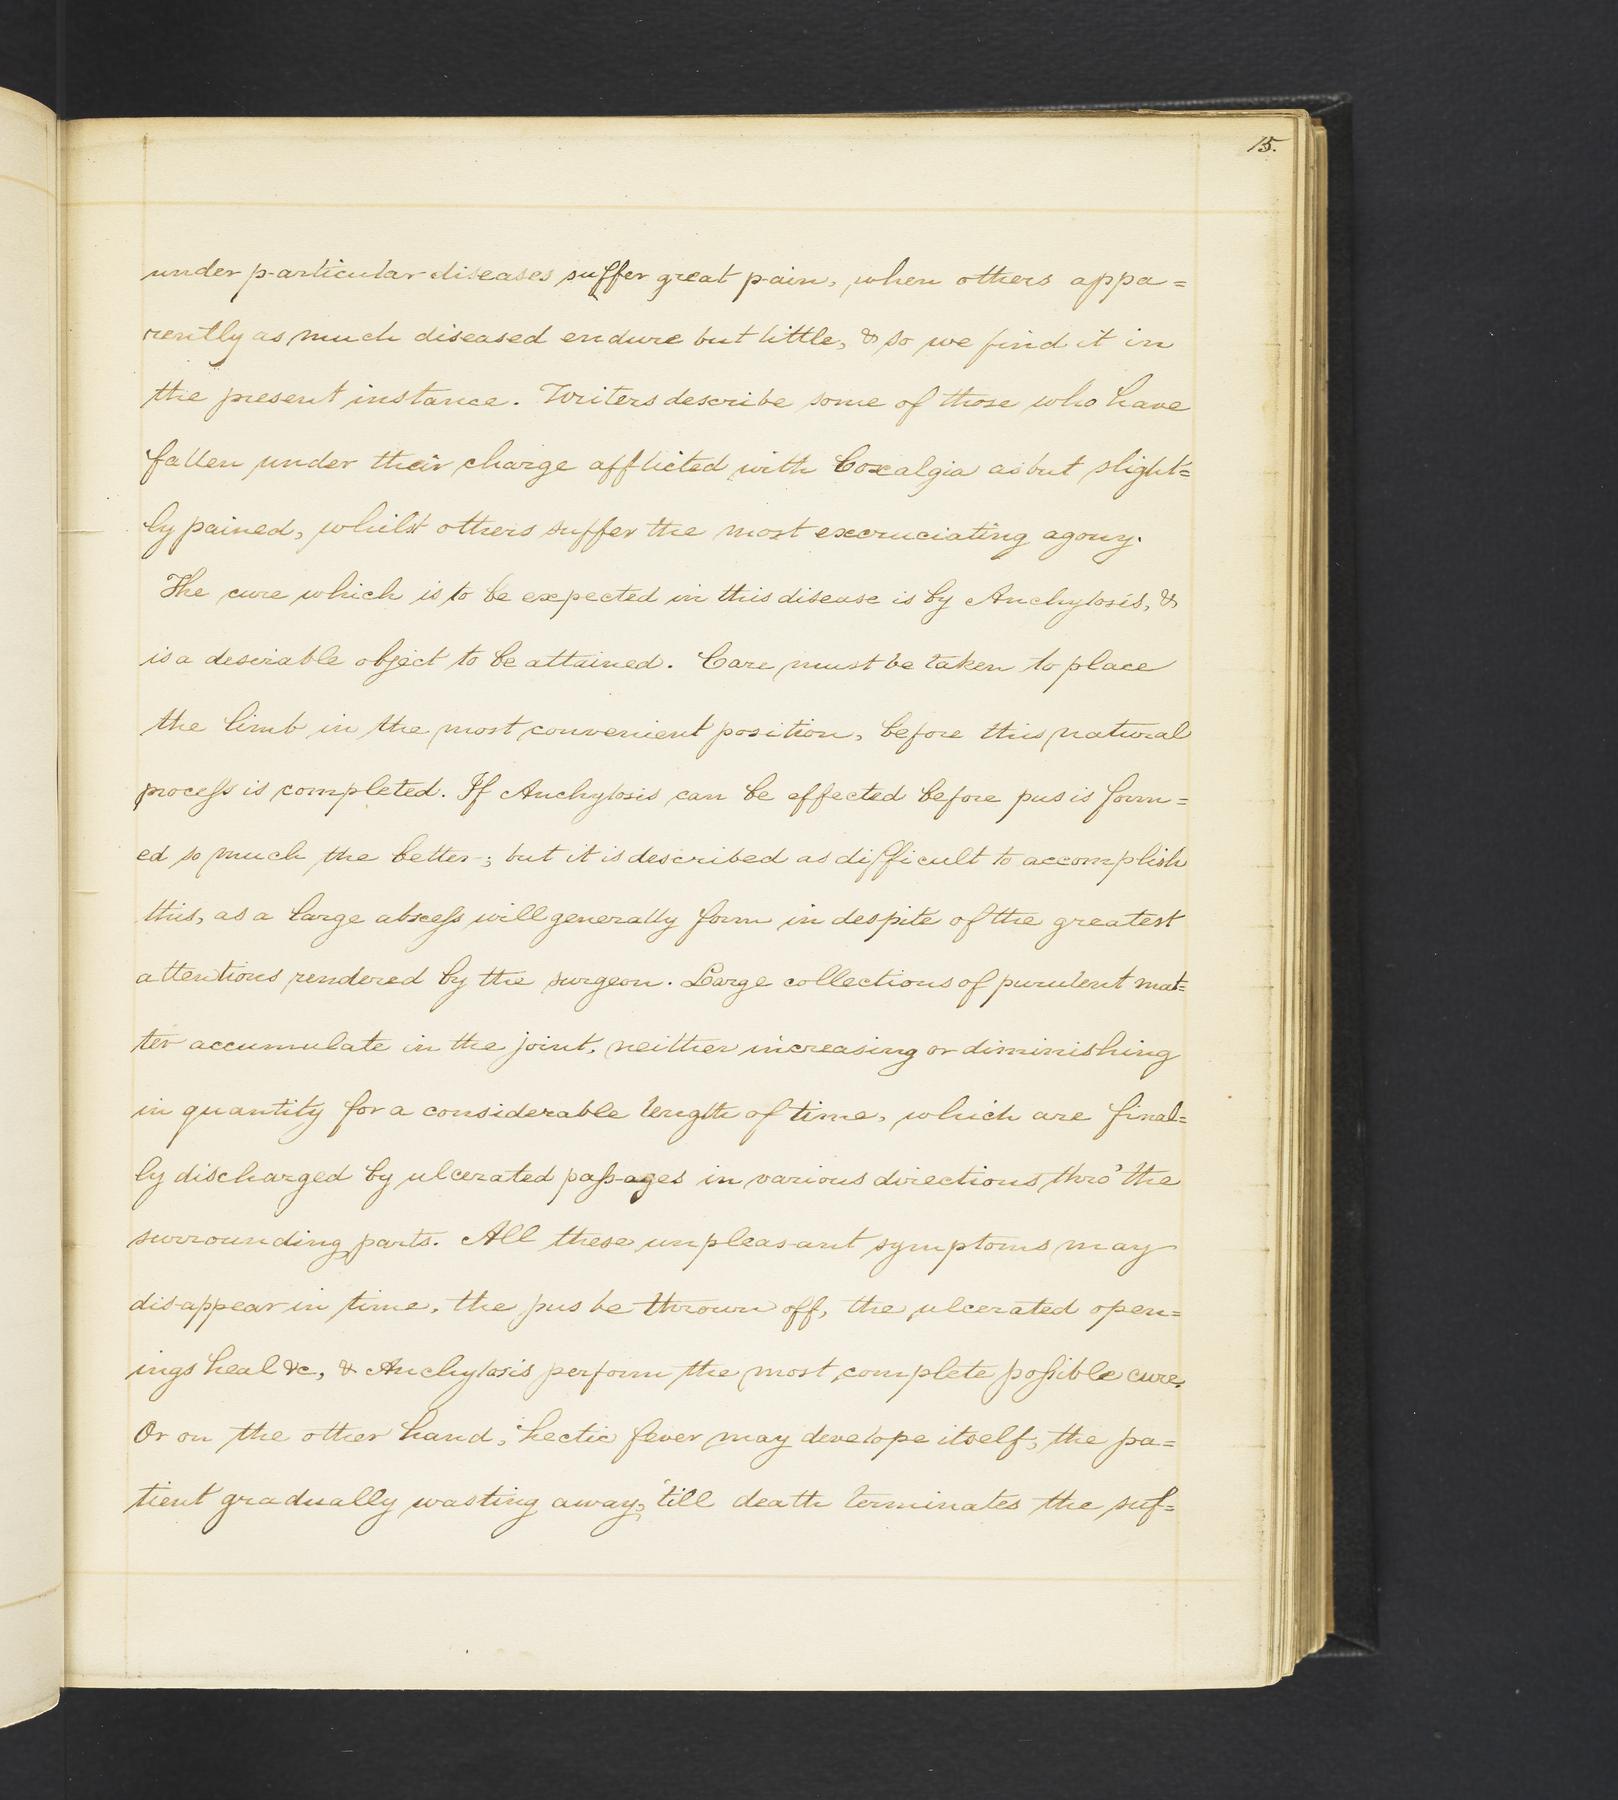 15.
under particular diseases suffer great pain, when others appa=
rently as much diseased endure but little, & so we find it in
the present instance. Writers describe some of those who have
fallen under their charge afflicted with Coxalgia as but slight=
ly pained, whilst others suffer the most excruciating agony.
The cure which is to be expected in this disease is by Anchylosis, &
is a desirable object to be attained. Care must be taken to place
the limb in the most convenient position, before this natural
process is completed. If Anchylosis can be effected before pus is form=
ed so much the better; but it is described as difficult to accomplish
this, as a large abscess will generally form in despite of the greatest
attentions rendered by the surgeon. Large collections of purulent mat=
ter accumulate in the joint, neither increasing or diminishing
in quantity for a considerable length of time, which are final=
ly discharged by ulcerated passages in various directions thro' the
surrounding parts. All these unpleasant symptoms may
disappear in time, the pus be thrown off, the ulcerated open=
ings heal &c, & Anchylosis perform the most complete possible cure.
Or on the other hand, hectic fever may develope itself, the pa=
tient gradually wasting away, 'till death terminates the suf=